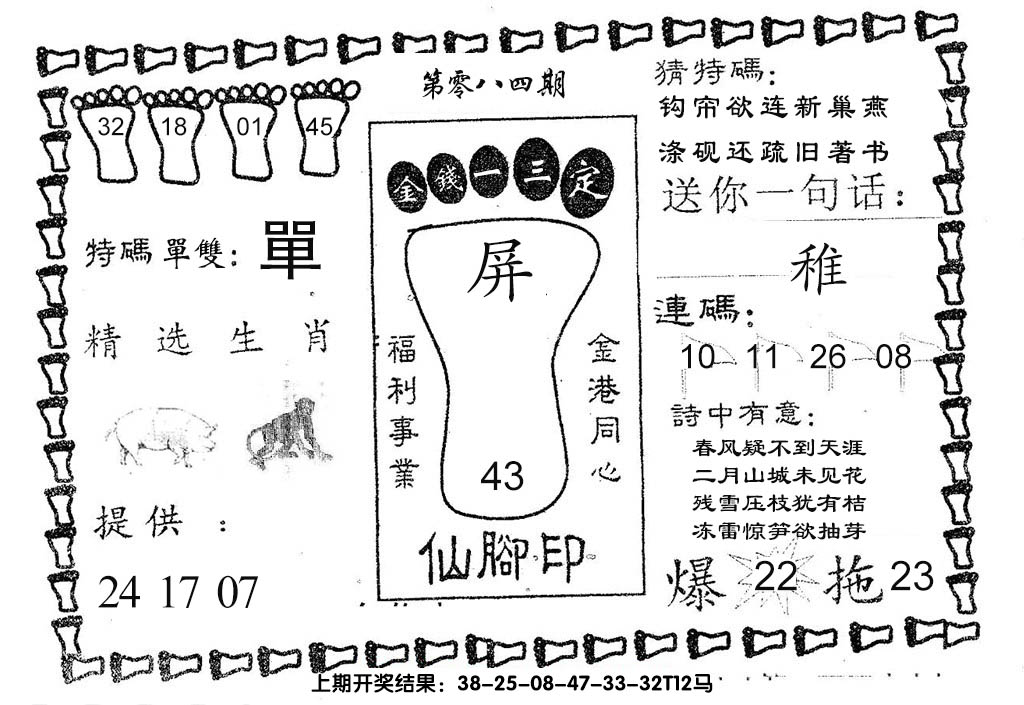 第零八四期
32 18 01 45
特碼單雙: 單
精选生肖
提供:
24 17 07
金錢一三定
屏
福利事業
金港同心
43
仙腳印
猜特碼:
钩帘欲连新巢燕
涤砚还疏旧著书
送你一句话:
稚
連碼:
10 11 26 08
詩中有意:
春风疑不到天涯
二月山城未见花
残雪压枝犹有桔
冻雷惊笋欲抽芽
爆 22 拖 23
上期开奖结果: 38-25-08-47-33-32T12马